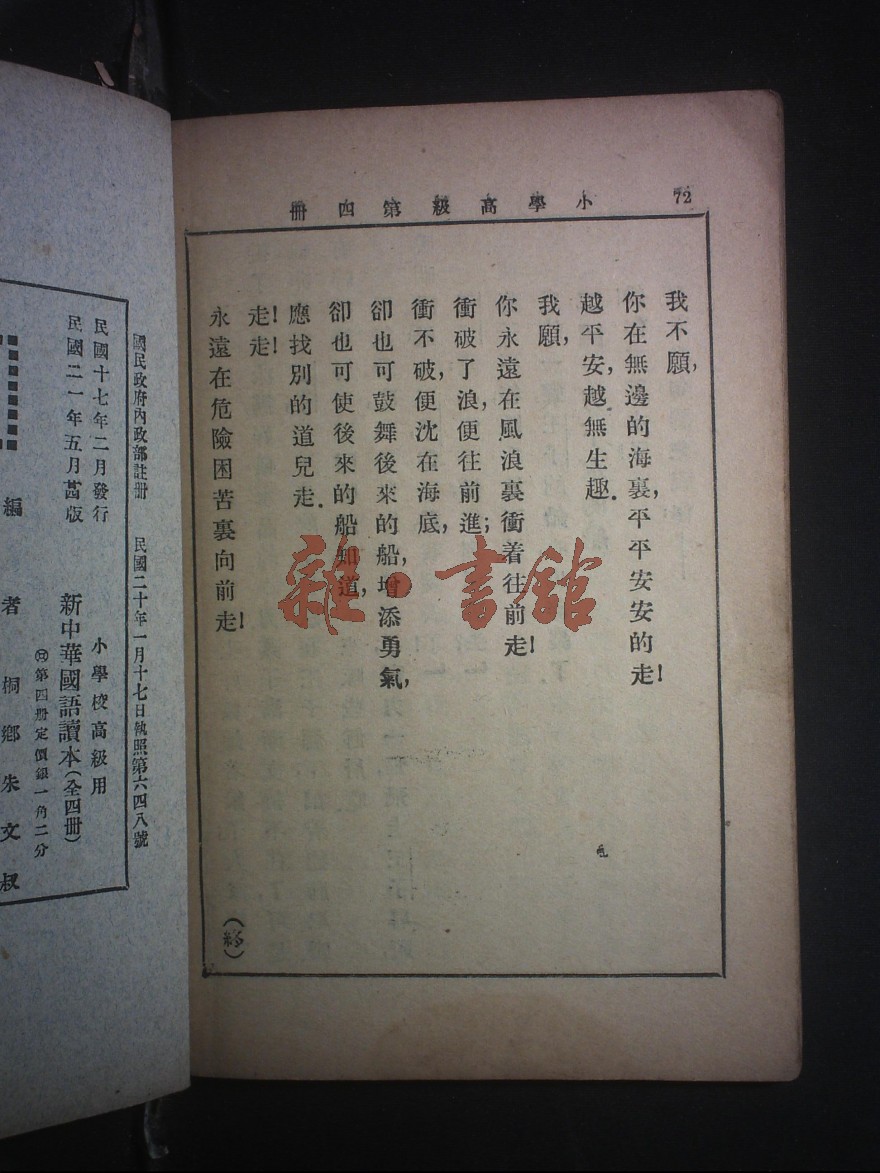 72
小學高級第四冊
我不願,
你在無邊的海裏,平平安安的走!
越平安,越無生趣.
我願,
你永遠在風浪裏衝着往前走!
衝破了浪,便往前進;
衝不破,便沈在海底,
卻也可鼓舞後來的船,增添勇氣,
卻也可使後來的船知道,
應找別的道兒走.
走!走!
永遠在危險困苦裏向前走!
(終)
雜·書館
國民政府內政部註冊 民國二十年一月十七日執照第六四八號
民國十七年二月發行
民國二一年五月 版
小學校高級用
新中華國語讀本(全四冊)
第四册定價銀一角二分
編者 桐鄉朱文叔